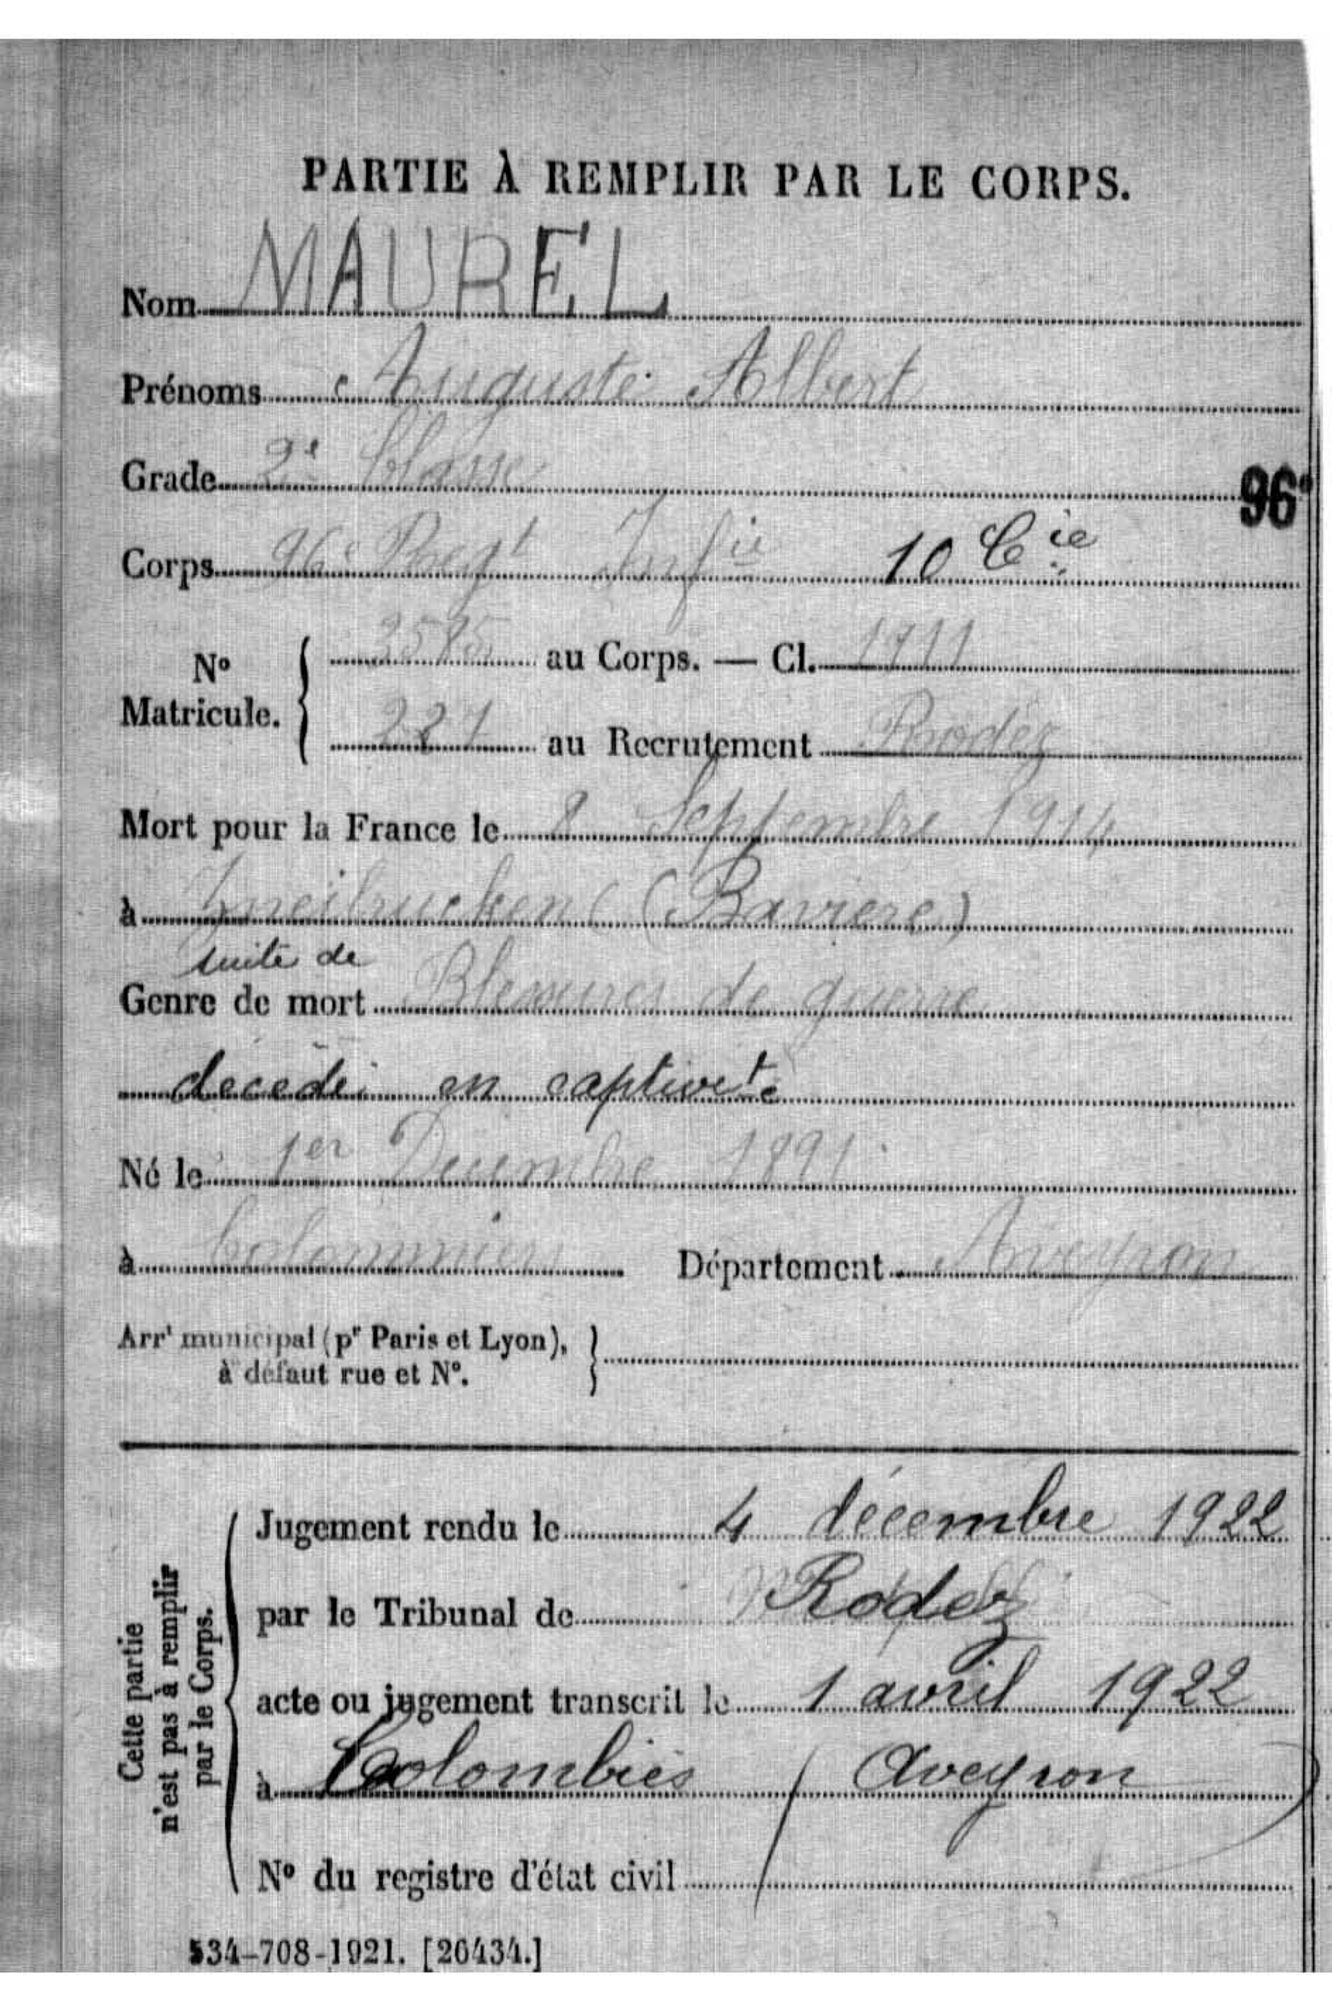 PARTIE À REMPLIR PAR LE CORPS.
Nom MAUREL
Prénoms Auguste Albert
Grade 2e Classe
96e
Corps 96e Regt Infie 10 Cie
No Matricule. 3585 au Corps. — Cl. 1911
227 au Recrutement Rodez
Mort pour la France le 8 Septembre 1914
à Zweibrucken (Baviere)
suite de
Genre de mort Blessures de guerre
décédé en captivité
Né le 1er Decembre 1891
à Département Aveyron
Arrt municipal (pr Paris et Lyon),
à défaut rue et No.
Cette partie
n'est pas à remplir
par le Corps.
Jugement rendu le 4 décembre 1922
par le Tribunal de Rodez
acte ou jugement transcrit le 1 avril 1922
à Colombiès (Aveyron)
No du registre d'état civil
534-708-1921. [26434.]